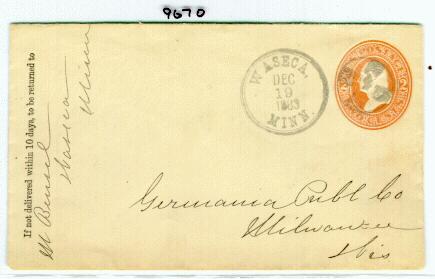 9670
If not delivered within 10 days, to be returned to
Waseca
Minn
WASECA.
DEC
19
1883
MINN.
U.S. POSTAGE
TWO CENTS
Germania Publ Co
Milwaukee
Wis